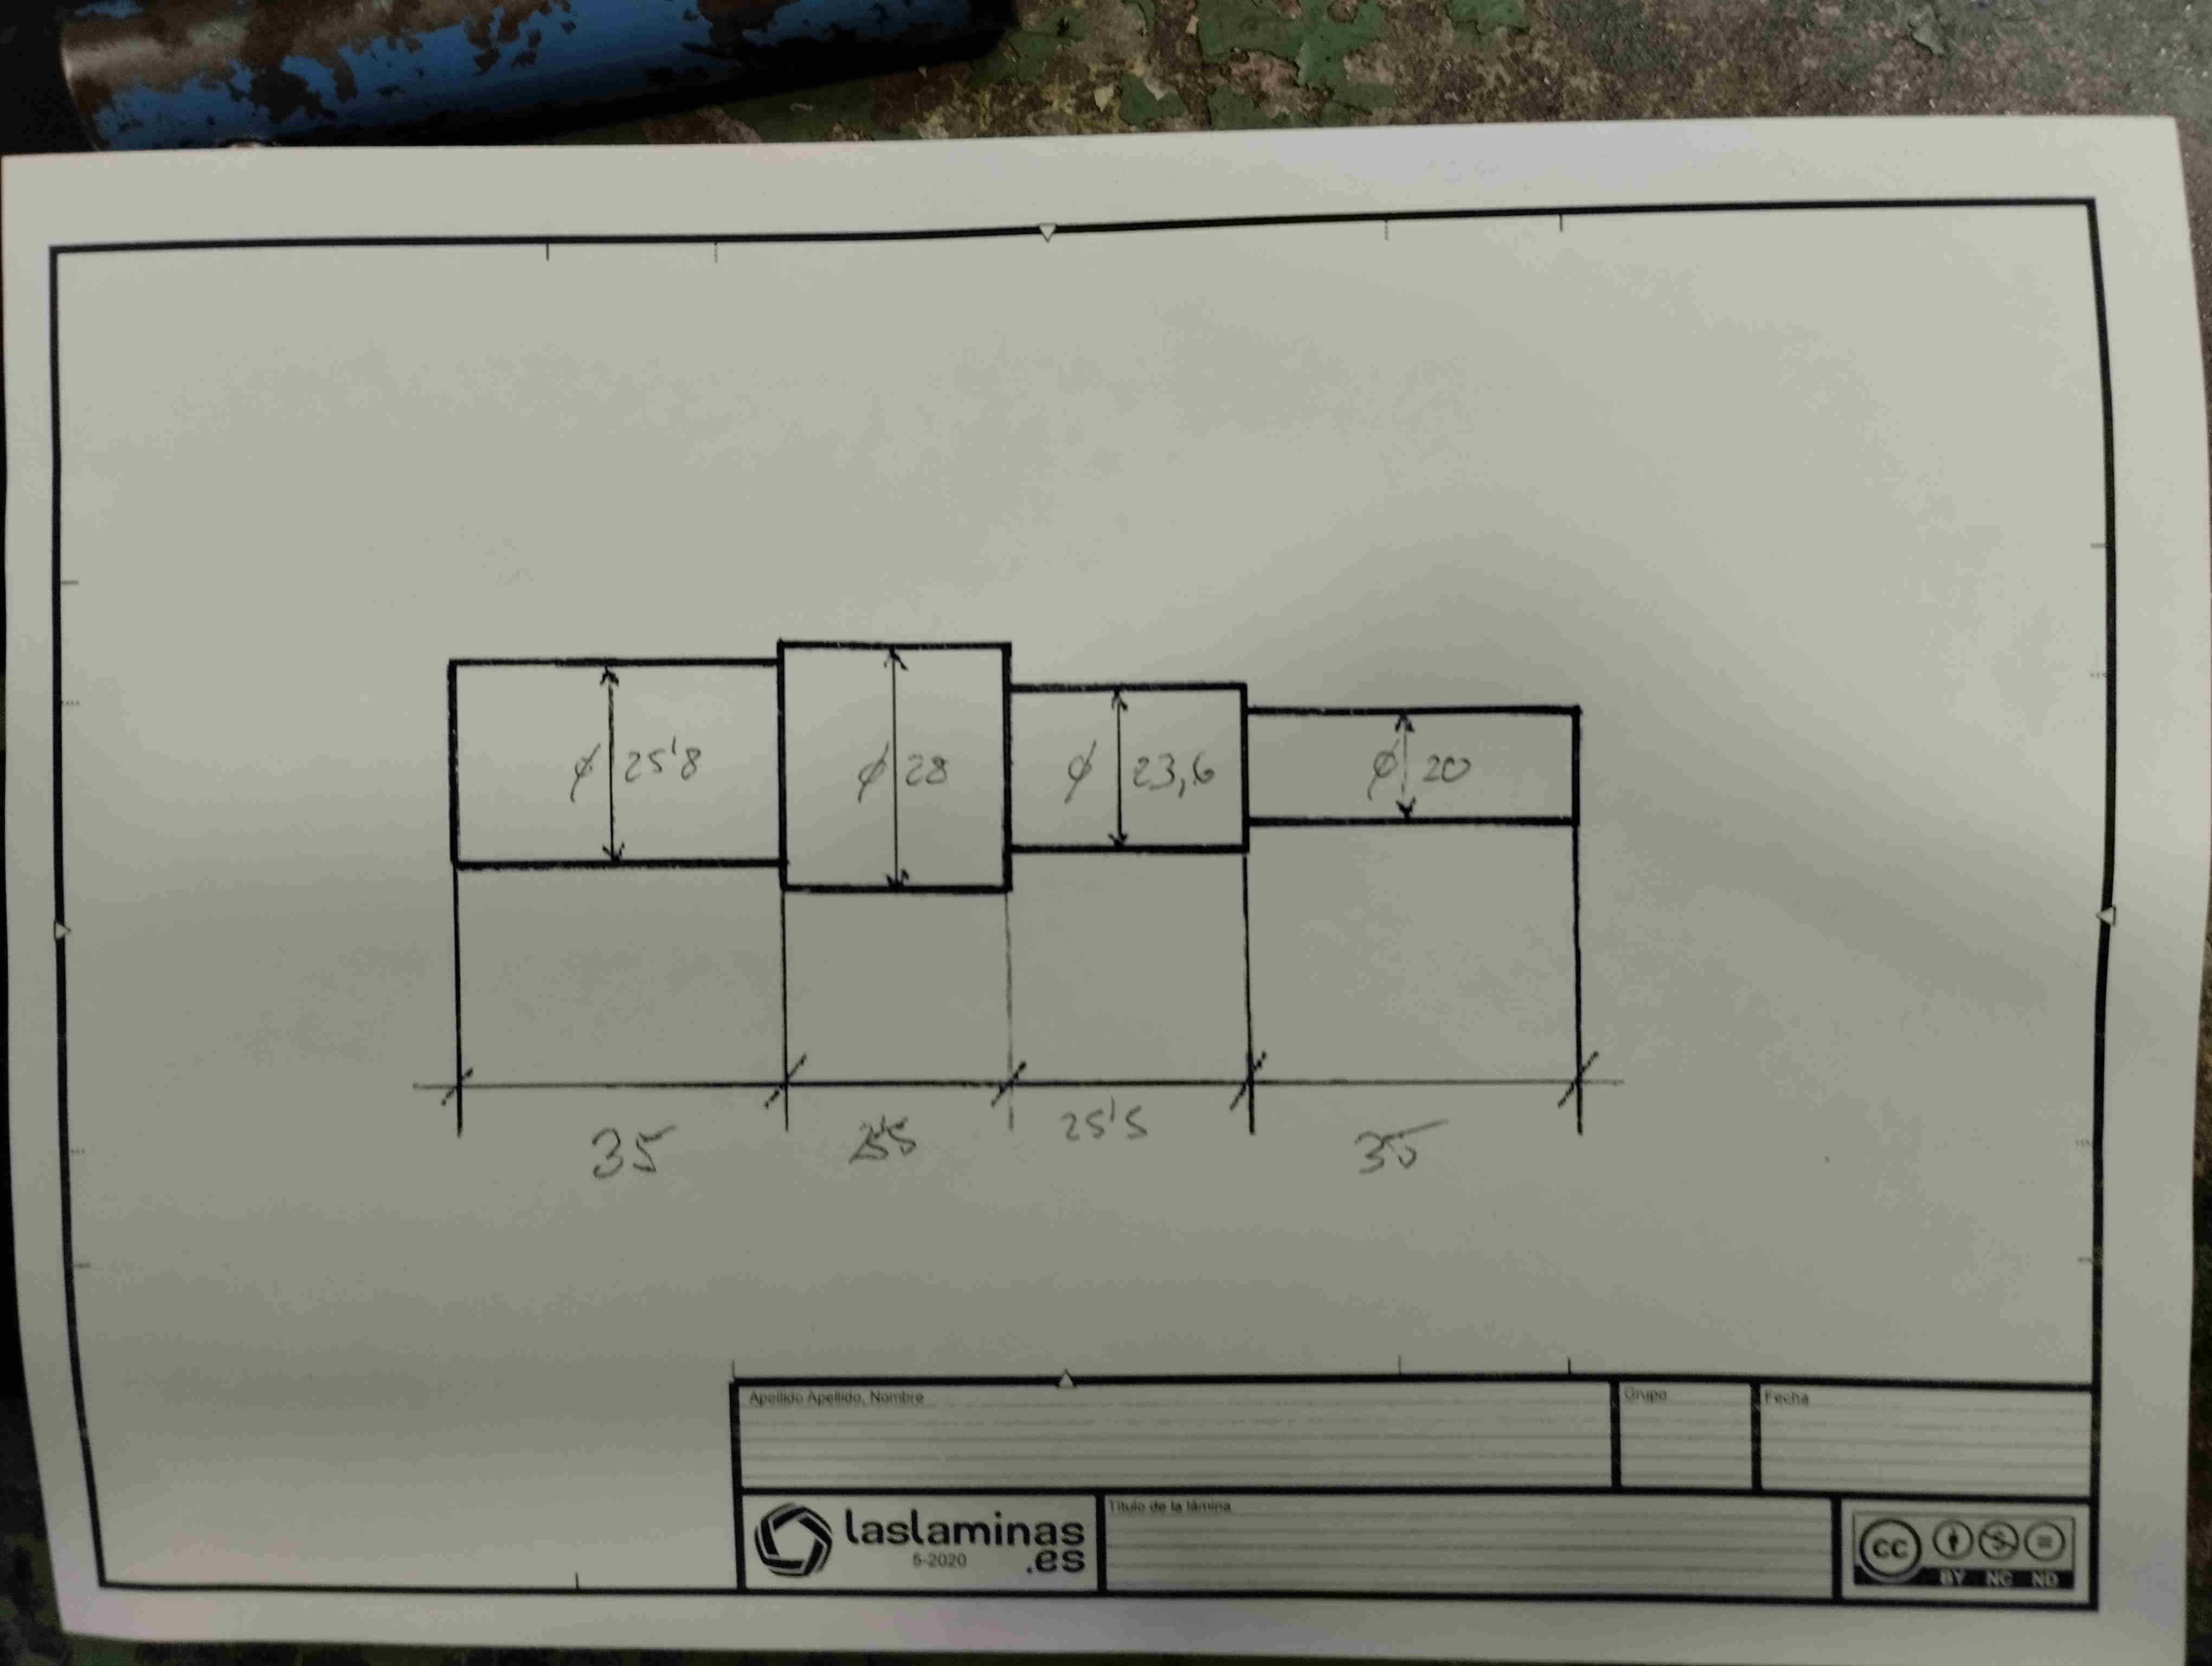 ϕ 25'8
ϕ 28
ϕ 23,6
ϕ 20
35
25'5
35
Apellido Apellido, Nombre
Grupo
Fecha
laslaminas
5-2020 .es
Título de la lámina
cc
BY NC ND